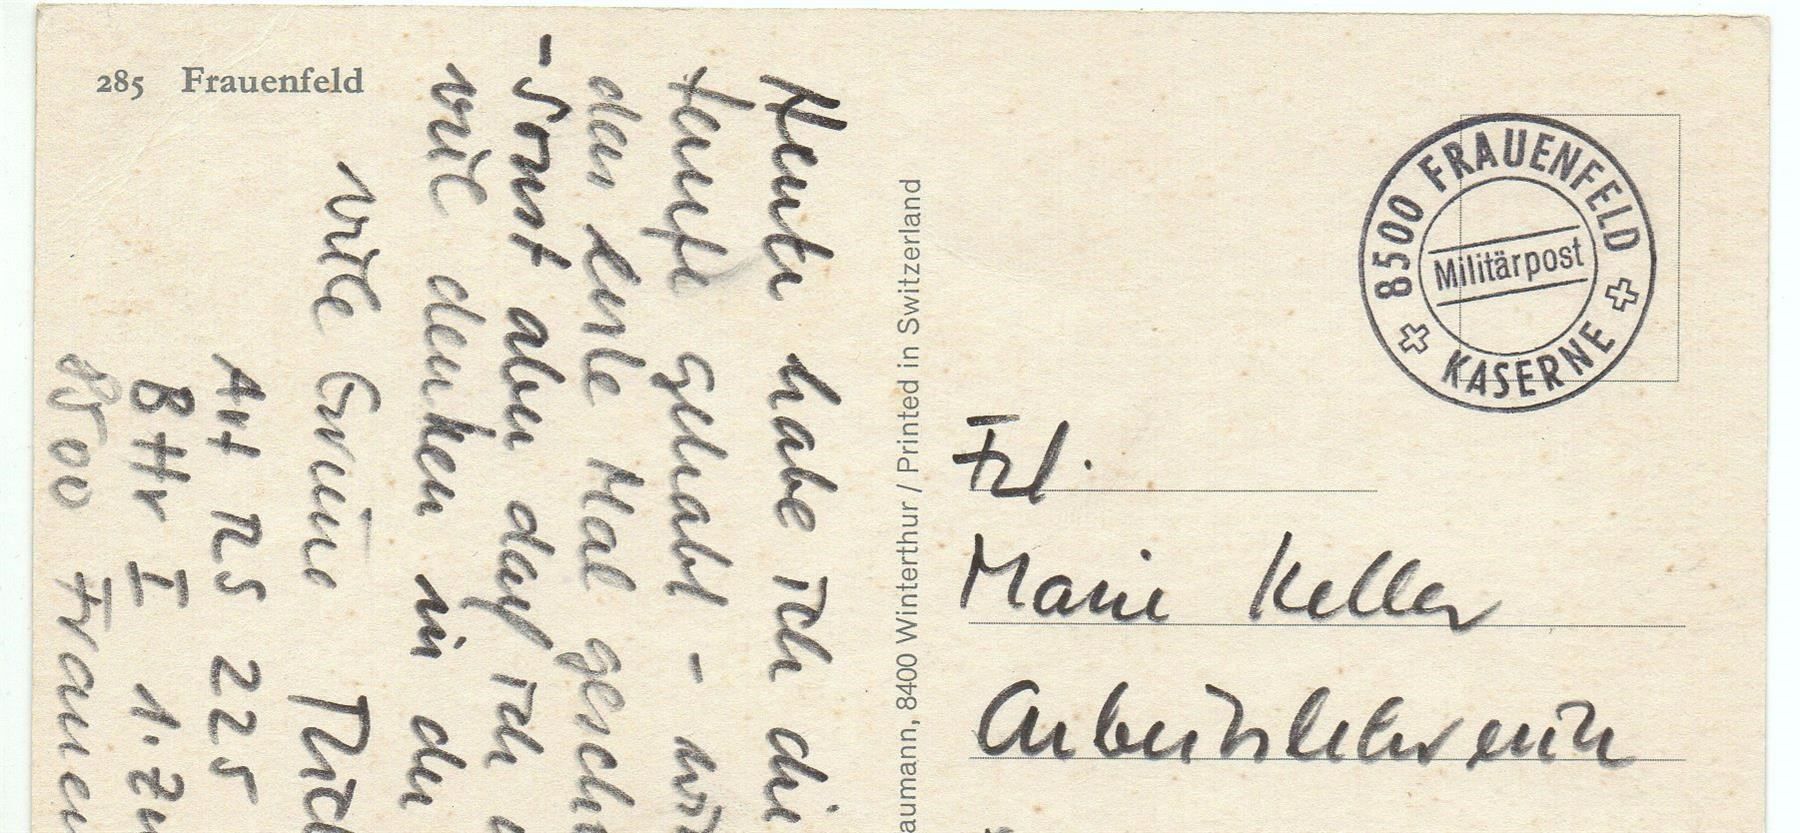 285 Frauenfeld
Heute habe ich die
Taufe gehabt - wir
das erste Mal
- Sonst aber darf ich
viel denken in der
viele Grüsse
Art RS 225
Bttr I 1. Zu
8500 Frauen
aumann, 8400 Winterthur / Printed in Switzerland
8500 FRAUENFELD
Militärpost
KASERNE
Frl.
Marie Keller
Arbeitslehrerin